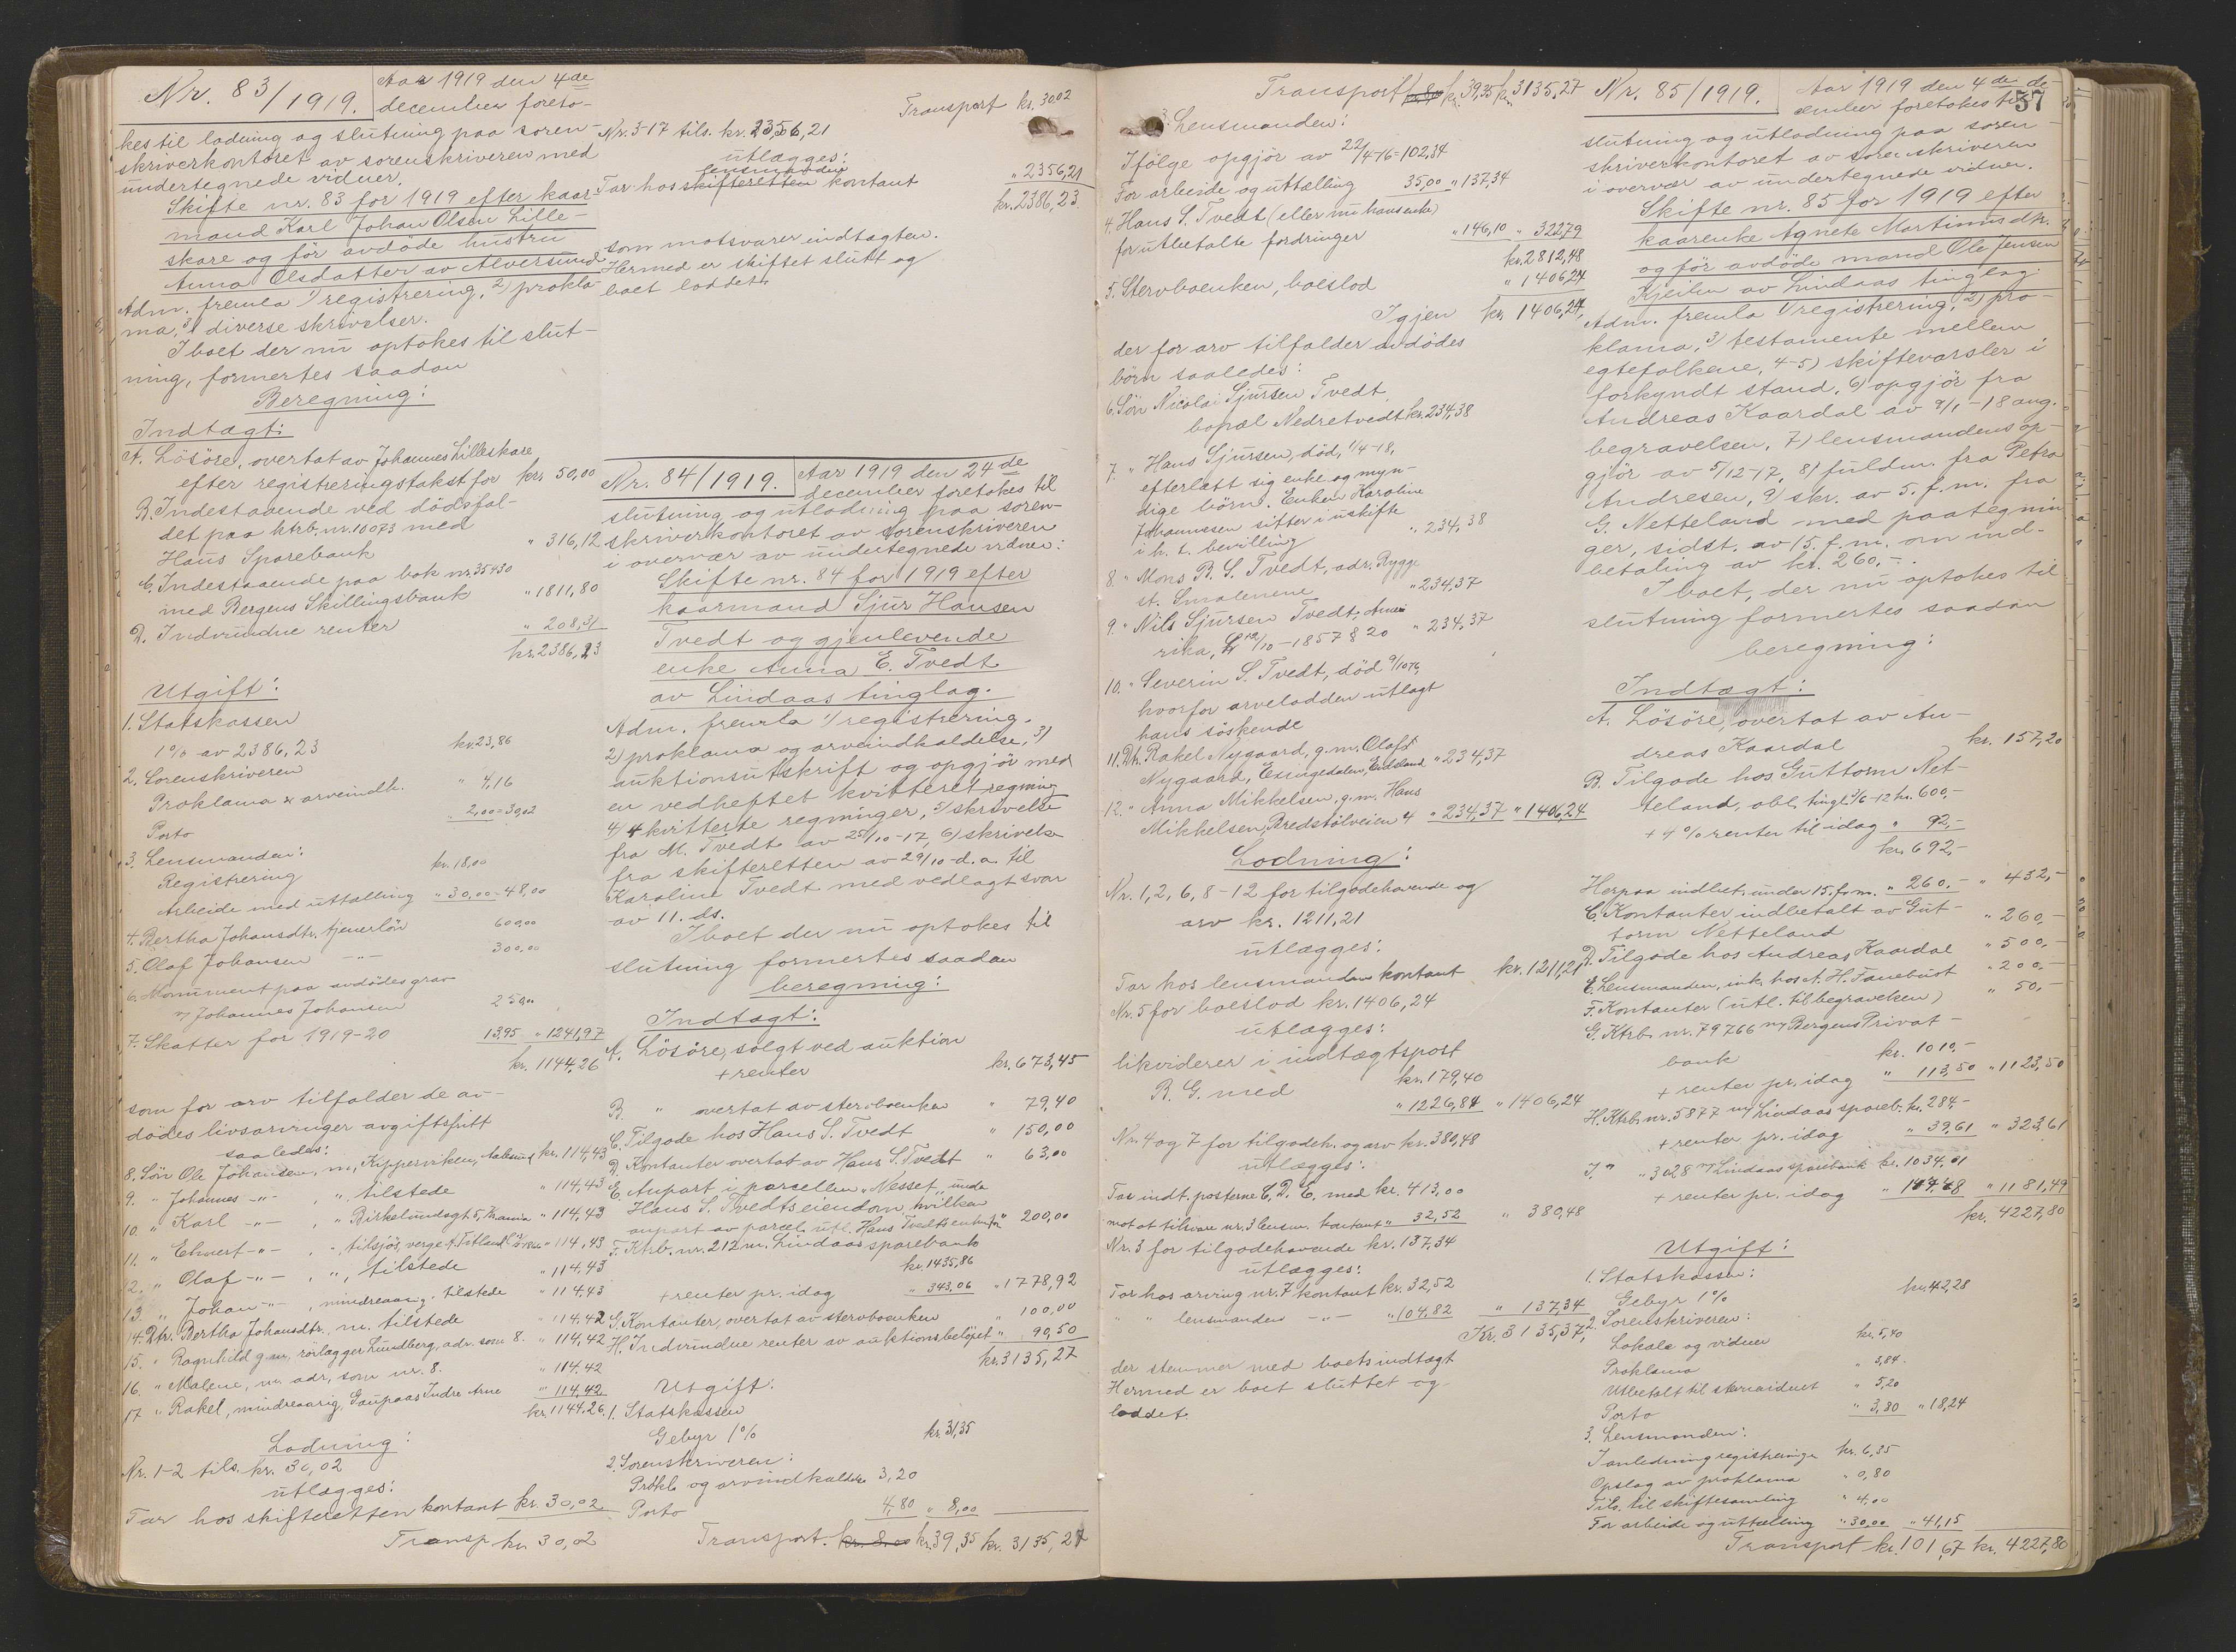 Nr. 83/1919.
Aar 1919 den 4de
december foreto-
kes til lodning og slutning paa soren-
skriverkontoret av sorenskriveren med
undertegnede vidner.
Skifte nr. 83 for 1919 efter kaar-
mand Karl Johan Olsen Lille-
skare og før avdøde hustru
Anna Olsdatter av Alversund
Adm. fremla 1) registrering, 2) prokla-
ma, 3) diverse skrivelser.
I boet der nu optokes til slut-
ning, formertes saadan
Beregning:
Indtægt:
A. Løsøre, overtat av Johannes Lilleskare
efter registreringstakst for kr. 50,00
B. Indestaaende ved dødsfal-
det paa ktrb. nr. 10073 med
Haus Sparebank " 316,12
C. Indestaaende paa bok nr. 35430
med Bergens Skillingsbank " 1811,80
D. Indvundne renter " 208,31
kr. 2386,23
Utgift:
1. Statskassen
1% av 2386,23 kr. 23,86
2. Sorenskriveren
Proklama & arveindk. " 4,16
Porto " 2,00 = 30,02
3. Lensmanden:
Registrering kr. 18,00
Arbeide med uttælling " 30,00 = 48,00
4. Bertha Johansdtr. tjenerløn 600,00
5. Olaf Johansen -"- 300,00
6. Monument paa avdødes grav
v/ Johannes Johansen 250,00
7. Skatter for 1919-20 13,95 " 1241,97
kr. 1144,26
som for arv tilfalder de av-
dødes livsarvinger avgiftsfrit
saaledes:
8. Søn Ole Johansen, m., Kipperviken, Aalesund kr. 114,43
9. " Johannes -"- , ", tilstede " 114,43
10. " Karl -"- , " Birkelundsgt 5, Krania " 114,43
11. " Ehnert -"- , " tilsjøs, verge A. Titland " 114,43
12. " Olaf -"- , ", tilstede " 114,43
13. " Johan -"- , mindreaarig, tilstede " 114,43
14. Dtr. Bertha Johansdtr., m. tilstede " 114,42
15. " Ragnhild g.m. rørlægger Lundberg, adr. som 8. " 114,42
16. " Malene, m. adr. som nr. 8. " 114,42
17 " Rakel, mindreaarig, Gaupaas Indre Arne " 114,42
kr. 1144,26.
Lodning:
Nr. 1-2 tils. kr. 30,02
utlægges:
Tar hos skifteretten kontant kr. 30,02
Transp. kr. 30,02
Transport kr. 30,02
Nr. 3-17 tils. kr. 2356,21
utlægges:
lensmanden
Tar hos skifteretten kontant " 2356,21
kr. 2386,23
som motsvarer indtægten.
Hermed er skiftet slutt og
boet loddet.
Nr. 84/1919.
Aar 1919 den 24de
december foretokes til
slutning og utlodning paa soren-
skriverkontoret av sorenskriveren
i overvær av undertegnede vidner:
Skifte nr. 84 for 1919 efter
kaarmand Sjur Hansen
Tvedt og gjenlevende
enke Anna E. Tvedt
av Lindaas tinglag.
Adm. fremla 1) registrering.
2) proklama og arveindkaldelse, 3)
auktionsutskrift og opgjør med
en vedheftet kvitteret regning
4) 4 kvitterte regninger, 5) skrivelse
fra M. Tvedt av 25/10-17, 6) skrivelse
fra skifteretten av 29/10 d.a. til
Karoline Tvedt med vedlagt svar
av 11. ds.
I boet der nu optokes til
slutning formertes saadan
beregning:
Indtægt:
A. Løsøre, solgt ved auktion
+ renter kr. 673,45
B. " overtat av stervboenken " 79,40
C. Tilgode hos Hans S. Tvedt " 150,00
D. Kontanter overtat av Hans S. Tvedt " 63,00
E. Anpart i parcellen "Nesset" unda
Hans S. Tvedts eiendom hvilken
anpart av parcel. utl. Hans Tvedts enke for " 200,00
F. Ktrb. nr. 212 m. Lindaas sparebank
kr. 1435,86
+ renter pr. idag " 343,06 " 1778,92
G. Kontanter, overtat av stervboenken " 100,00
H. Indvundne renter av auktionsbeløpet " 90,50
kr. 3135,27
Utgift:
1. Statskassen
Gebyr 1% kr. 31,35
2. Sorenskriveren:
Prokl. og arvindkaldelse 3,20
Porto 4,80 " 8,00
Transport. kr. 8.00 kr. 39,35 kr. 3135,27
Transport kr. 39,35 kr. 3135,27
3. Lensmanden:
Ifølge opgjør av 22/4-16 = 102,34
For arbeide og uttælling 35,00 " 137,34
4. Hans S. Tvedt (eller nu hans enke)
for utbetalte fordringer " 146,10 " 322,79
kr. 2812,48
5. Stervboenken, boeslod " 1406,24
Igjen kr. 1406,24,
der for arv tilfalder avdødes
børn saaledes:
6. Søn Nicolai Sjursen Tvedt,
bopæl Nedretvedt kr. 234,38
7. " Hans Sjursen, død, 1/4-18,
efterlatt sig enke og myn-
dige børn. Enken Karoline
Johannesen sitter i uskifte
i h. t. bevilling " 234,38
8. " Mons B. S. Tvedt, adr. Rygge
st. Smalenene " 234,37
9. " Nils Sjursen Tvedt, Ame-
rika, L 12/10-1857 § 20 " 234,37
10. " Severin S. Tvedt, død 9/10 76,
hvorfor arvelodden utlagt
hans søskende
11. Dt. Rakel Nygaard, g.m. Olaf
Nygaard, Exingedalen, Eidsland " 234,37
12. " Anna Mikkelsen, g.m. Hans
Mikkelsen, Bredstølveien 4 " 234,37 " 1406,24
Lodning:
Nr. 1, 2, 6, 8-12 for tilgodehavende og
arv kr. 1211,21
utlægges:
Tar hos lensmanden kontant kr. 1211,21
Nr. 5 for boeslod kr. 1406,24
utlægges:
likviderer i indtægtspost
B. G. med kr. 179,40
" 1226,84 " 1406,24
Nr. 4 og 7 for tilgodeh. og arv kr. 380,48
utlægges:
Tar indt. posterne C, D, E, med kr. 413,00
mot at tilsvare nr. 3 lensm. kontant " 32,52 " 380,48
Nr. 3 for tilgodehavende kr. 137,34
utlægges:
Tar hos arving nr. 7 kontant kr. 32,52
" " lensmanden -"- " 104,82 " 137,34
Kr. 3135,37,
der stemmer med boets indtægt
Hermed er boet sluttet og
loddet.
57
Nr. 85/1919.
Aar 1919 den 4de de-
cember foretokes til
slutning og utlodning paa soren-
skriverkontoret av sorenskriveren
i overvær av undertegnede vidner.
Skifte nr. 85 for 1919 efter
kaarenke Agnete Martinusdtr.
og før avdøde mand Ole Jensen
Kjeilen av Lindaas tinglag.
Adm. fremla 1) registrering, 2) pro-
klama, 3) testamente mellem
egtefolkene, 4-5) skiftevarsler i
forkyndt stand, 6) opgjør fra
Andreas Kaardal av 9/1-18 ang.
begravelsen, 7) lensmandens op-
gjør av 5/12-17, 8) fuldm. fra Petra
Andresen, 9) skr. av 5. f.m. fra
G. Netteland med paategnin
ger, sidst. av 15. f.m. om ind-
betaling av kr. 260,-.
I boet, der nu optokes til
slutning formertes saadan
beregning:
Indtægt:
A. Løsøre, overtat av An-
dreas Kaardal kr. 157,20
B. Tilgode hos Guttorm Net-
teland, obl. tingl. 3/6-12 kr. 600,-
+ 4% renter til idag " 92,-
kr. 692,-
Herpaa indbet. under 15. f.m. " 260,- " 432,-
C. Kontanter indbetalt av Gut-
torm Netteland " 260,-
D. Tilgode hos Andreas Kaardal " 500,-
E. Lensmanden, ink. hos A. H. Fanebust " 200,-
F. Kontanter (utl. til begravelsen) " 50,-
G. Ktrb. nr. 79766 m/ Bergens Privat-
bank kr. 1010,-
+ renter pr. idag " 113,50 " 1123,50
H. Ktrb. nr. 5877 m/ Lindaas spareb. kr. 284,-
+ renter pr. idag " 39,61 " 323,61
I. " " 3028 m/ Lindaas sparebank kr. 1034,01
+ renter pr. idag " 147,48 " 1181,49
kr. 4227,80
Utgift:
1. Statskassen:
Gebyr 1% kr. 42,28
2. Sorenskriveren:
Lokale og vidner kr. 5,40
Proklama " 3,84.
Utbetalt til skoraidnet " 5,20
Porto " 3,80 " 18,24
3. Lensmanden:
I anledning registreringe kr. 6,35
Opslag av proklama " 0,80
Tils. til skiftesamling " 4,00
For arbeide og uttælling " 30,00 " 41,15
Transport kr. 101,67 kr. 4227,80